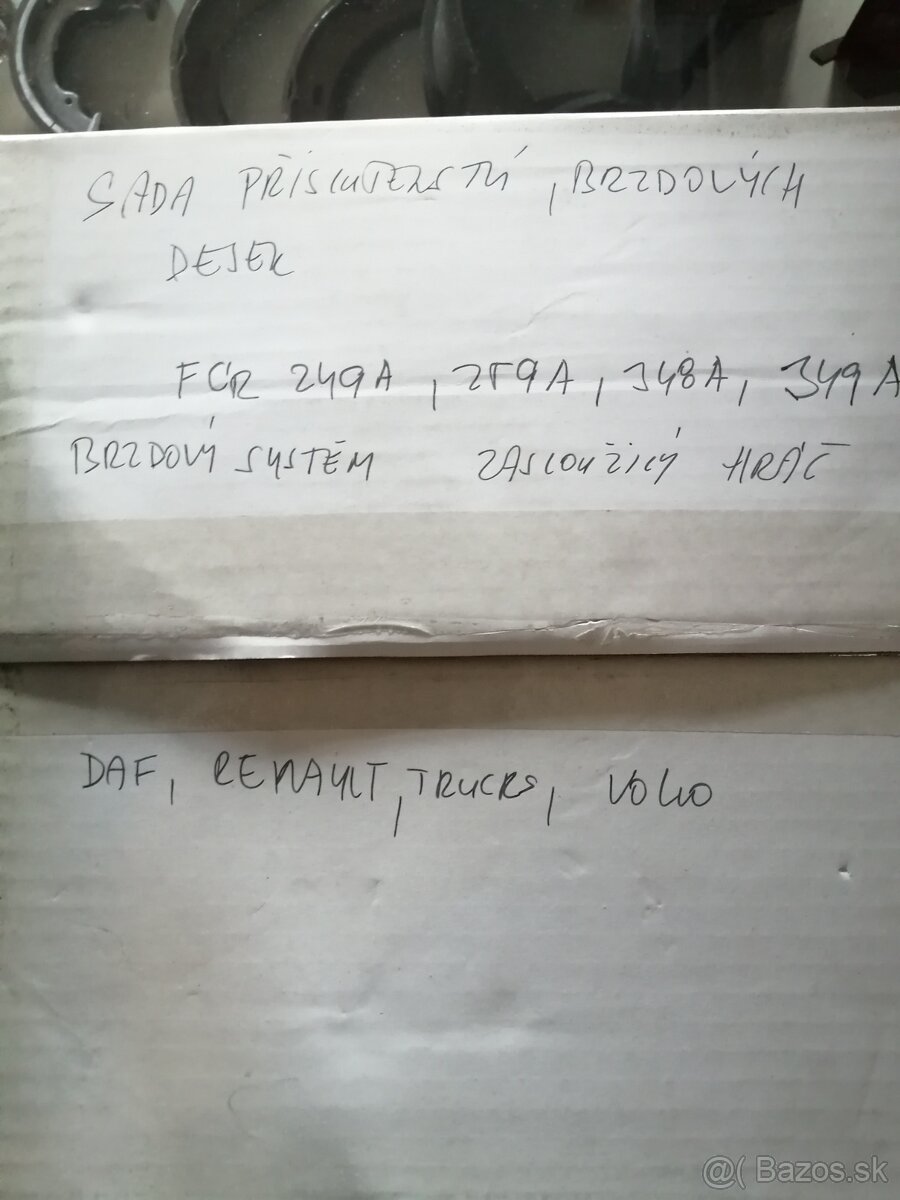 SADA PŘÍSLUŠENSTVÍ, BRZDOVÝCH
DESEK
FCR 249A, 259A, 348A, 349A
BRZDOVÝ SYSTÉM ZASLOUŽILÝ HRÁČ
DAF, RENAULT, TRUCKS, VOLVO
@( Bazos.sk